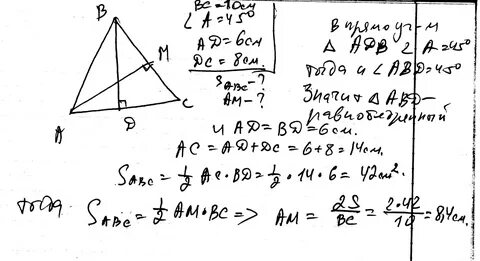 BC = 10см
∠A = 45°
AD = 6см
DC = 8см.
S ABC - ?
AM - ?
B
M
A
D
C
В прямоуг-м
△ ADB ∠A = 45°
тогда и ∠ABD = 45°
Значит △ ABD -
равнобедренный
и AD = BD = 6см.
AC = AD + DC = 6 + 8 = 14см.
S ABC = 1/2 AC · BD = 1/2 · 14 · 6 = 42см².
тогда S ABC = 1/2 AM · BC => AM = 2S/BC = 2·42/10 = 8,4см.